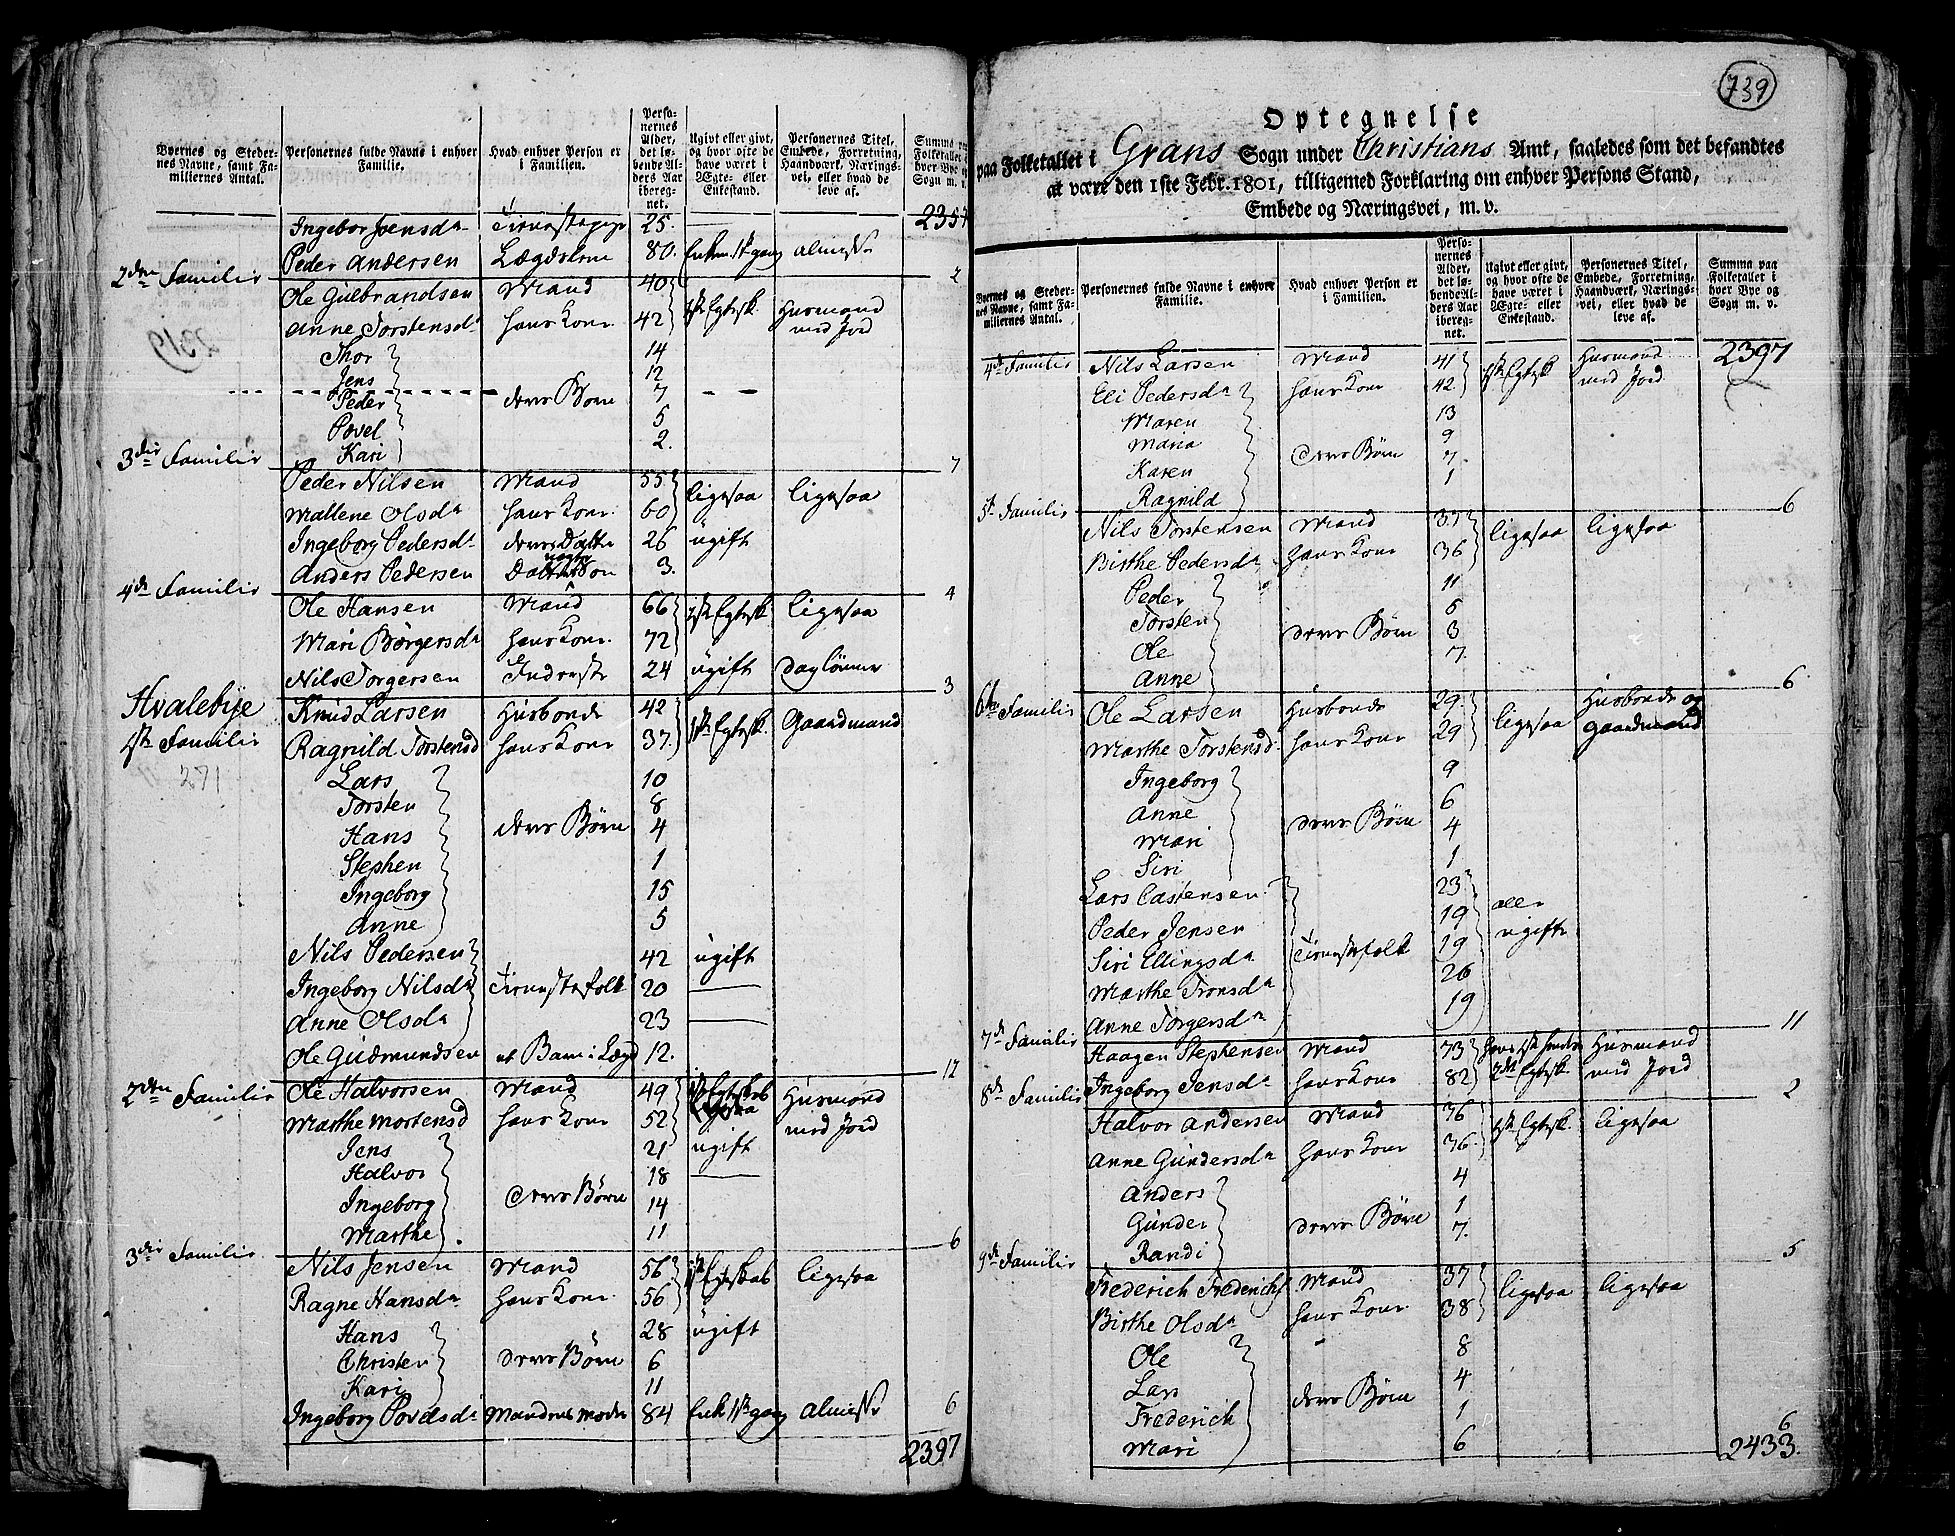 Byernes og Steder-
nes Navne, samt Fa-
miliernes Antal.
Personernes fulde Navne i enhver
Familie.
Hvad enhver Person er
i Familien.
Perso-
nernes
Alder,
det lø-
bende Al-
ders Aar
ibereg-
net.
Ugivt eller givt,
og hvor ofte de
have været i
Ægte- eller
Enkestand.
Personernes Titel,
Embede, Forretning,
Haandværk, Nærings-
vei, eller hvad de
leve af.
Summa paa
Folketallet i
hver Bye og
Sogn m. v.
2357
Ingebor Jvensda Tienestepige 25. —
Peder Andersen Lægdslem 80. Enkem. 1ste gang almisse
2
2den Familie
Ole Gulbrandsen Mand 40 1ste Egtesk. Huusmand
Anne Torstensda hans Kone 42 med Jord
Thor 14
Jens 12
Peder deres Børn 7 — —
Povel 5
Kari 2.
7
3die Familie
Peder Nilsen Mand 55 ligesaa ligesaa
Mallene Olsda hans Kone 60
Ingeborg Pedersda deres Datter 26 ugift
Anders Pedersen Datters Søn 3.
4
4de Familie
Ole Hansen Mand 66 1ste Egtesk. ligesaa
Mari Børgersda hans Kone 72
Nils Torgersen Inderste 24 ugift Daglønner
3
Hvalebye
1ste Familie
271
Knud Larsen Huusbonde 42 1ste Egtesk. Gaardmand
Ragnild Torstensd hans Kone 37.
Lars 10
Torsten 8
Hans deres Børn 4
Stephen 1
Ingeborg 15
Anne 5
Nils Pedersen 42 ugift
Ingeborg Nilsda Tienestefolk 20 —
Anne Olsda 23 —
Ole Gudmundsen et Barn i Lægd 12.
12
2den Familie
Ole Halvorsen Mand 49 Huusmand
Marthe Mortensd hans Kone 52 med Jord
Jens 21 ugift
Halvor 18 —
Ingeborg deres Børn 14
Marthe 11
6
3die Familie
Nils Jensen Mand 56 1ste Egteskab ligesaa
Ragne Hansda hans Kone 56
Hans 28 ugift
Christen deres Børn 6
Kari 11
Ingeborg Povelsda Mandens moder 84 Enke 1ste gang almisse
6
2397
739
Optegnelse
paa Folketallet i Grans Sogn under Christians Amt, saaledes som det befandtes
at være den 1ste Febr. 1801, tilligemed Forklaring om enhver Persons Stand,
Embede og Næringsvei, m. v.
Byernes og Steder-
nes Navne, samt Fa-
miliernes Antal.
Personernes fulde Navne i enhver
Familie.
Hvad enhver Person er
i Familien.
Perso-
nernes
Alder,
det lø-
bende Al-
ders Aar
ibereg-
net.
Ugivt eller givt,
og hvor ofte de
have været i
Ægte- eller
Enkestand.
Personernes Titel,
Embede, Forretning,
Haandværk, Nærings-
vei, eller hvad de
leve af.
Summa paa
Folketallet i
hver Bye og
Sogn m. v.
2397
4de Familie
Nils Larsen Mand 41 1ste Egtesk. Huusmand
Eli Pedersda hans Kone 42 med Jord
Maren 13
Maria 9
Karen deres Børn 7.
Ragnild 1
6
5te Familie
Nils Torstensen Mand 37 ligesaa ligesaa
Birthe Pedersda hans Kone 36
Peder 11
Torsten 6
Ole deres Børn 3
Anne 7.
6
6te Familie
Ole Larsen Huusbonde 29. ligesaa Huusbonde og
Marthe Torstensd. hans Kone 29 gaardmand
Ingeborg 9
Anne 6
Mari deres Børn 4
Siri 1
Lars Castensen 23 alle
Peder Jensen 19 ugifte
Siri Ellingsda Tienestefolk 19
Marthe Tronsda 26
Anne Torgersda 19
11
7de Familie
Haagen Stephensen Mand 73 Huusmand
Ingeborg Jensda hans Kone 82 2det Egtesk. med Jord
2
8de Familie
Halvor Andersen Mand 36 1ste Egtesk. ligesaa
Anne Gundersda hans Kone 36
Anders 4
Gunder deres Børn 1
Randi 7.
5
9de Familie
Frederich Frederichs Mand 37 ligesaa ligesaa
Birthe Olsda hans Kone 38
Ole 8
Lars deres Børn 4
Frederich 1
Mari 6
6
2433.